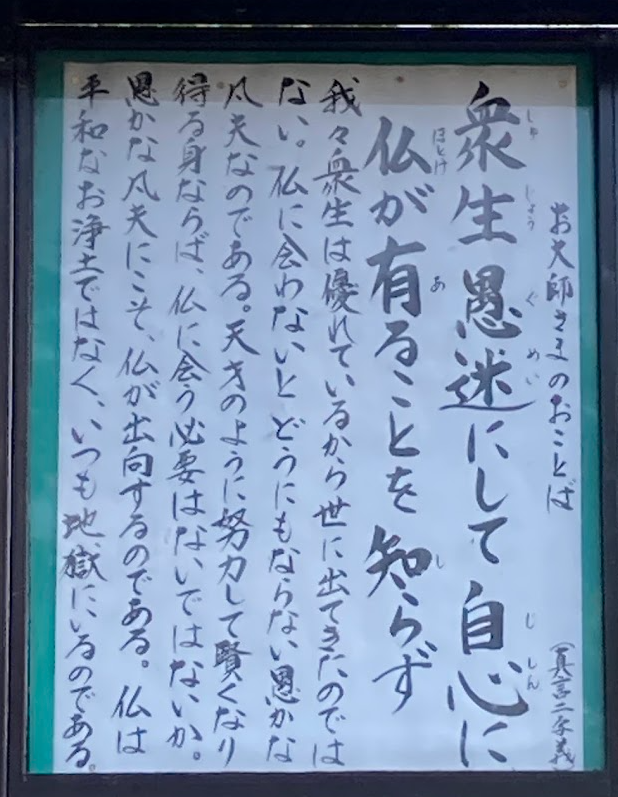 お大師さまのおことば (真言二字義)
しゅ じょう ぐ めい じ しん
衆生愚迷にして自心に
ほとけ あ し
仏が有ることを知らず
我々衆生は優れているから世に出てきたのでは
ない。仏に会わないとどうにもならない愚かな
凡夫なのである。天才のように努力して賢くなり
得る身ならば、仏に会う必要はないではないか。
愚かな凡夫にこそ、仏が出向するのである。仏は
平和なお浄土ではなく、いつも地獄にいるのである。